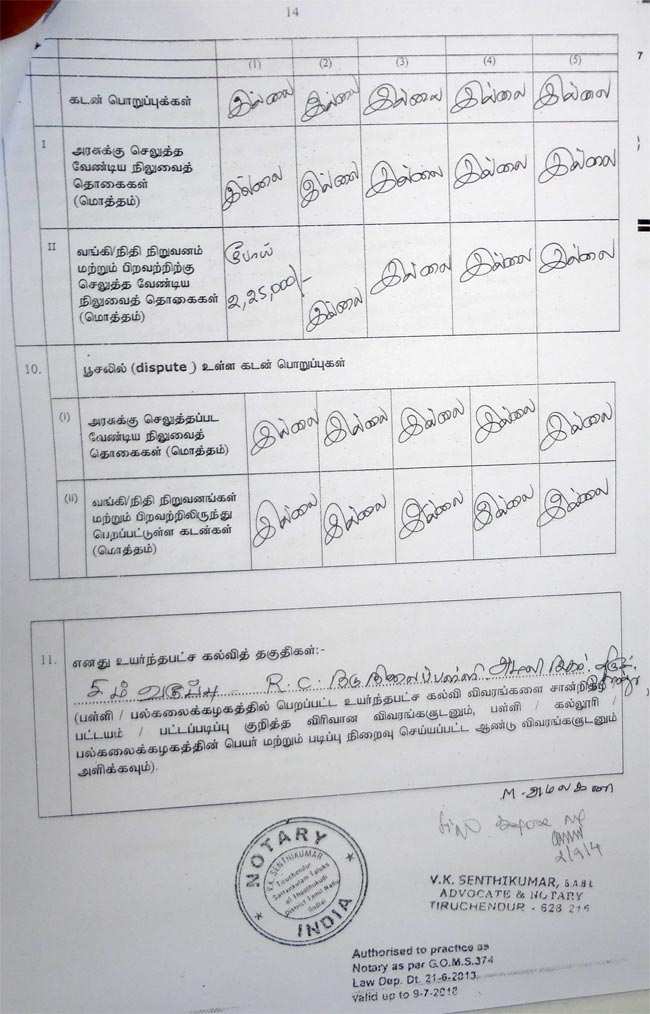 14
7
(1) (2) (3) (4) (5)
கடன் பொறுப்புக்கள் இல்லை இல்லை இல்லை இல்லை இல்லை
I அரசுக்கு செலுத்த
வேண்டிய நிலுவைத்
தொகைகள்
(மொத்தம்) இல்லை இல்லை இல்லை இல்லை இல்லை
II வங்கி/நிதி நிறுவனம்
மற்றும் பிறவற்றிற்கு
செலுத்த வேண்டிய
நிலுவைத் தொகைகள்
(மொத்தம்) 2,25,000/- இல்லை இல்லை இல்லை இல்லை
10. பூசலில் (dispute ) உள்ள கடன் பொறுப்புகள்
(i) அரசுக்கு செலுத்தப்பட
வேண்டிய நிலுவைத்
தொகைகள் (மொத்தம்) இல்லை இல்லை இல்லை இல்லை இல்லை
(ii) வங்கி/நிதி நிறுவனங்கள்
மற்றும் பிறவற்றிலிருந்து
பெறப்பட்டுள்ள கடன்கள்
(மொத்தம்) இல்லை இல்லை இல்லை இல்லை இல்லை
11. எனது உயர்ந்தபட்ச கல்வித் தகுதிகள்:-
R.C.
(பள்ளி / பல்கலைக்கழகத்தில் பெறப்பட்ட உயர்ந்தபட்ச கல்வி விவரங்களை சான்றிதழ் /
பட்டயம் / பட்டப்படிப்பு குறித்த விரிவான விவரங்களுடனும், பள்ளி / கல்லூரி /
பல்கலைக்கழகத்தின் பெயர் மற்றும் படிப்பு நிறைவு செய்யப்பட்ட ஆண்டு விவரங்களுடனும்
அளிக்கவும்).
M. அமலகனி
NOTARY
V.K. SENTHIKUMAR
Tiruchendur
Santankulam Taluks
of Thoothikudi
District Tamil Nadu
(India)
INDIA
V.K. SENTHIKUMAR, B.A.B.L
ADVOCATE & NOTARY
TIRUCHENDUR - 628 215
Authorised to practice as
Notary as par G.O.M.S.374
Law Dep. Dt. 21-6-2013
valid up to 9-7-2018